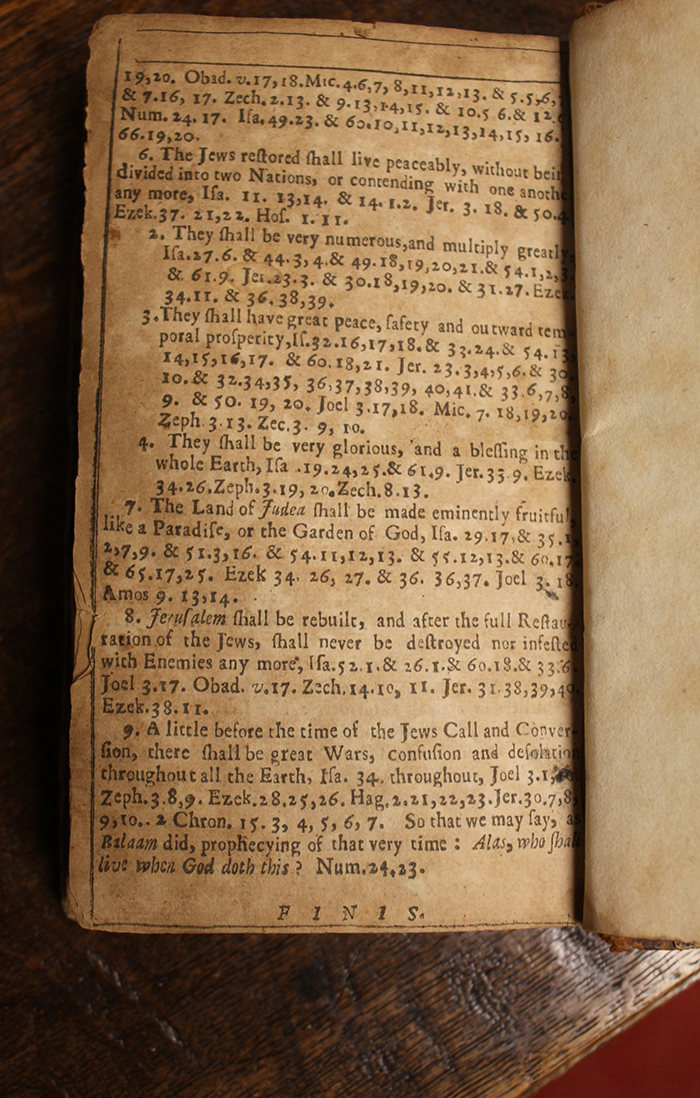 19,20. Obad. v.17,18.Mic.4.6,7, 8,11,12,13. & 5.5,6,
& 7.16, 17. Zech.2.13. & 9.13,14,15. & 10.5 6.& 12.
Num. 24. 17. Iſa.49.23. & 60.10,11,12,13,14,15, 16.
66.19,20.
6. The Jews reſtored ſhall live peaceably, without
divided into two Nations, or contending with one
any more, Iſa. 11. 13,14. & 14.1.2. Jer. 3. 18. & 50.4.
Ezek.37. 21,22. Hoſ. 1.11.
2. They ſhall be very numerous,and multiply greatly,
Iſa.27.6. & 44.3,4.& 49.18,19,20,21.& 54.1,2,3.
& 61.9. Jer.23.3. & 30.18,19,20. & 31.27.Ezek.
34.11. & 36.38,39.
3.They ſhall have great peace, ſafety and outward tem-
poral proſperity,Iſ.32.16,17,18.& 33.24.& 54.13,
14,15,16,17. & 60.18,21. Jer. 23.3,4,5,6.& 30.
10.& 32.34,35, 36,37,38,39, 40,41.& 33.6,7,8,
9. & 50. 19, 20. Joel 3.17,18. Mic. 7. 18,19,20.
Zeph.3.13. Zec.3. 9, 10.
4. They ſhall be very glorious, and a bleſſing in the
whole Earth, Iſa .19.24,25.& 61.9. Jer.33.9. Ezek.
34.26.Zeph.3.19, 20.Zech.8.13.
7. The Land of Judea ſhall be made eminently fruitful,
like a Paradiſe, or the Garden of God, Iſa. 29.17,& 35.1,
2,7,9. & 51.3,16. & 54.11,12,13. & 55.12,13.& 60.17.
& 65.17,25. Ezek 34. 26, 27. & 36. 36,37. Joel 3. 18.
Amos 9. 13,14.
8. Jeruſalem ſhall be rebuilt, and after the full Reſtau-
ration of the Jews, ſhall never be deſtroyed nor infeſted
with Enemies any more, Iſa.52.1.& 26.1.& 60.18.& 33.6.
Joel 3.17. Obad. v.17. Zech.14.10, 11. Jer. 31.38,39,40.
Ezek.38.11.
9. A little before the time of the Jews Call and Conver-
ſion, there ſhall be great Wars, confuſion and deſolation
throughout all the Earth, Iſa. 34. throughout, Joel 3.1,
Zeph.3.8,9. Ezek.28.25,26. Hag.2.21,22,23.Jer.30.7,8,
9,10.. 2 Chron. 15.3, 4, 5, 6, 7. So that we may ſay, as
Balaam did, prophecying of that very time : Alas, who ſhall
live when God doth this ? Num.24.23.
F I N I S.